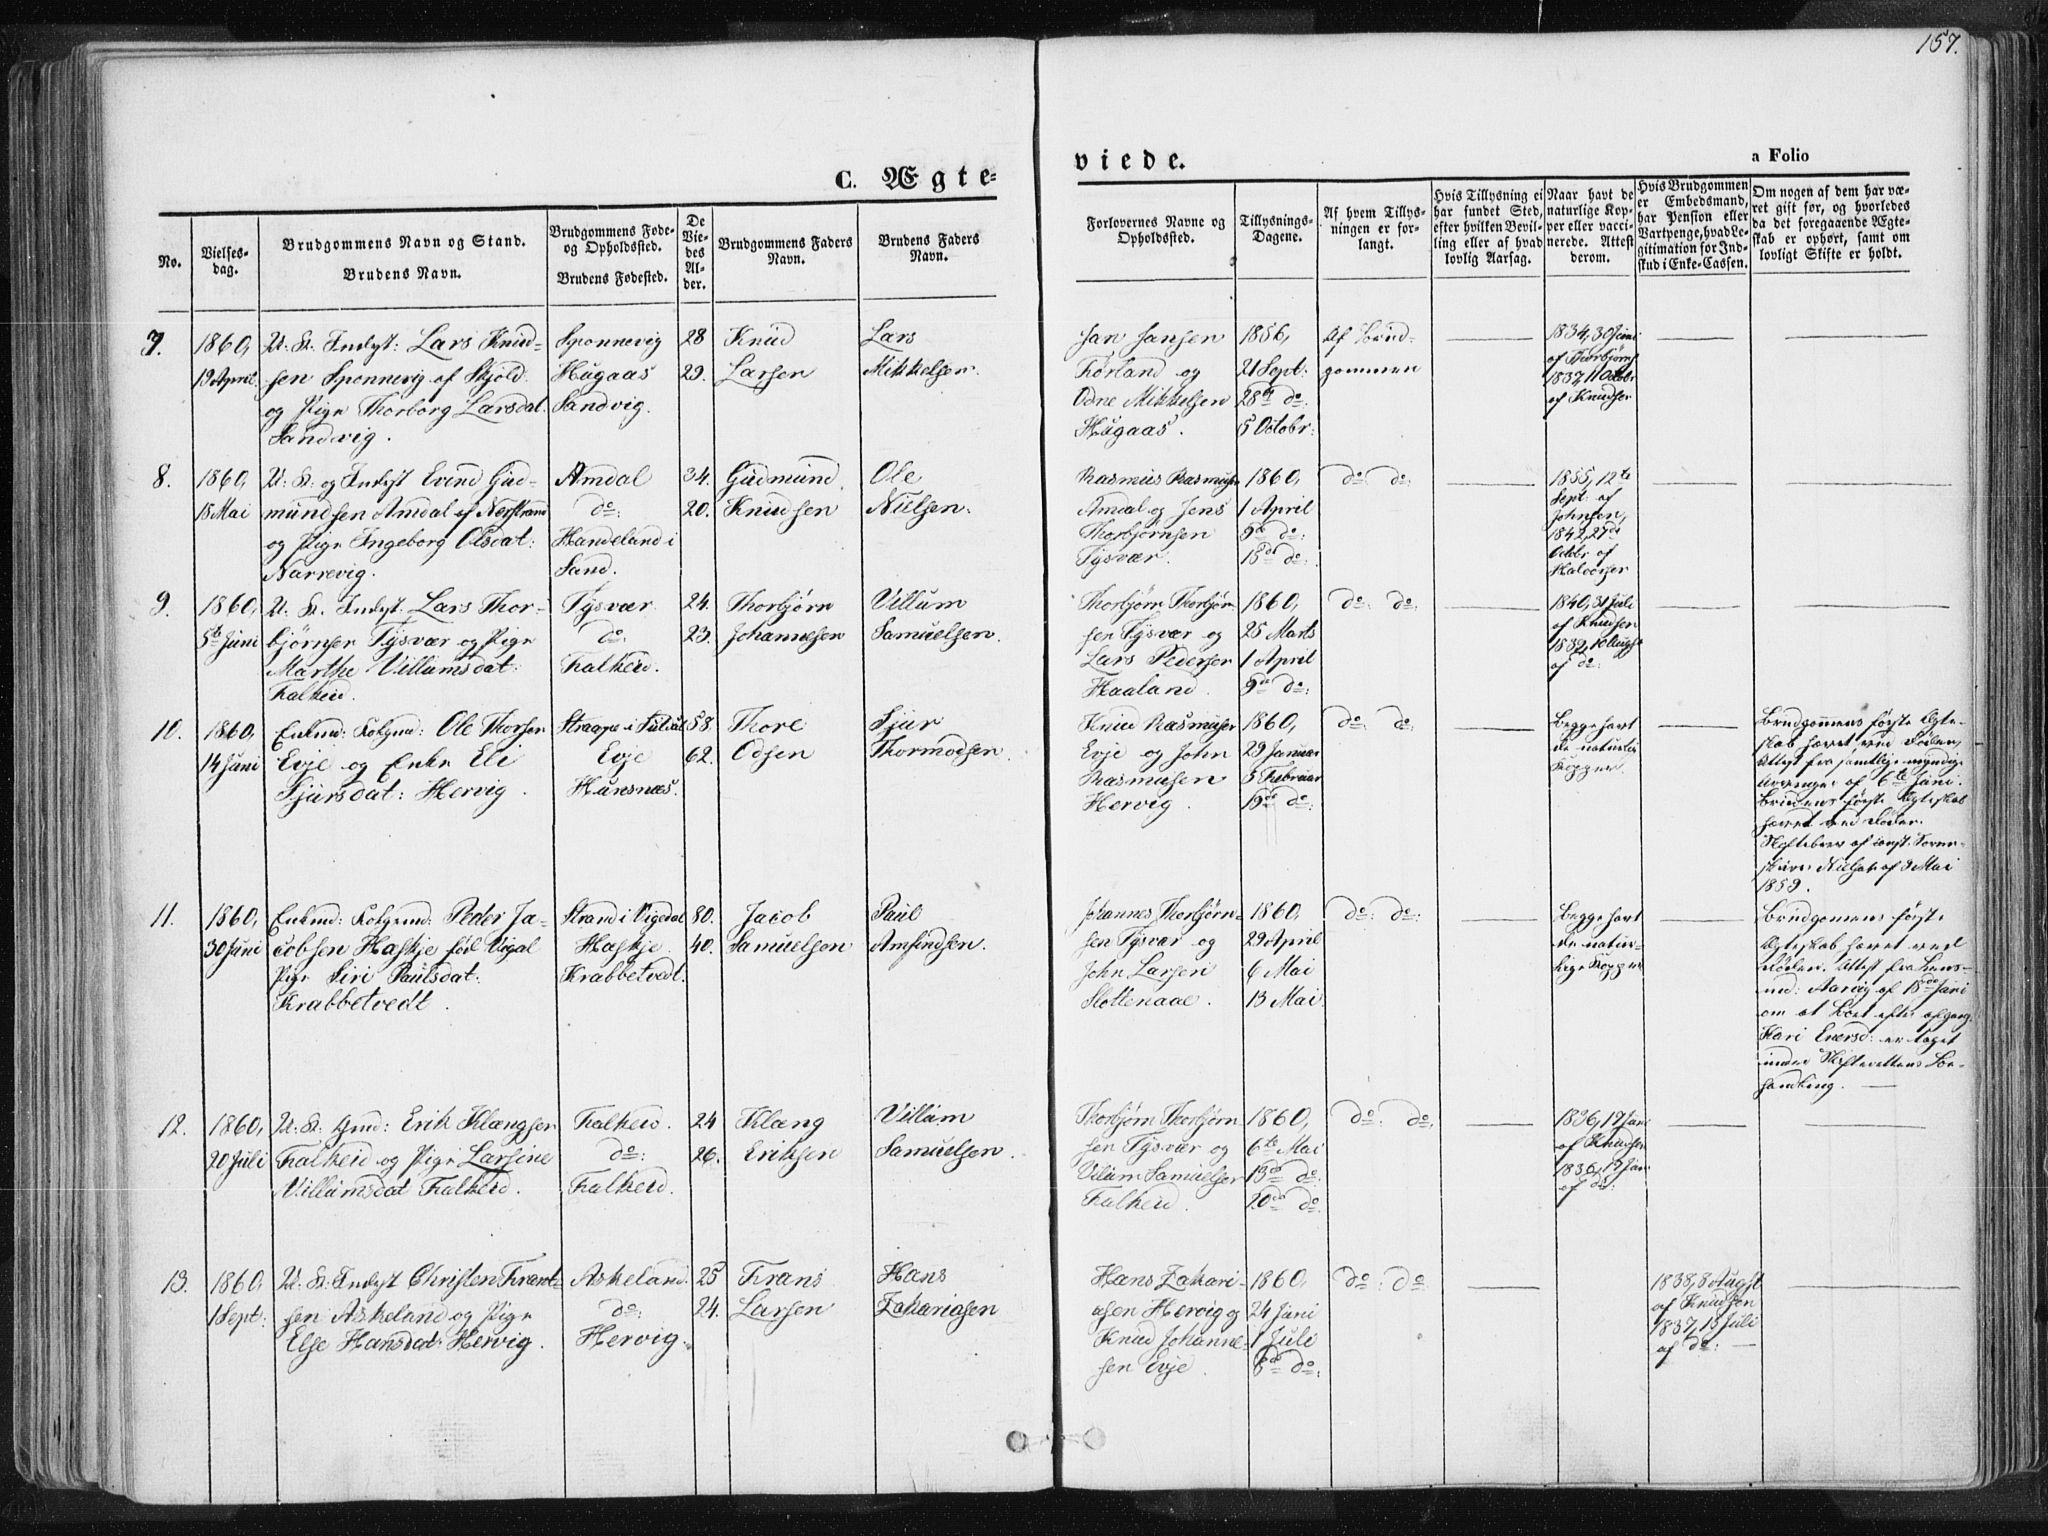 157.
C. Ægte-
viede.
a Folio
No.
Vielses-
dag.
Brudgommens Navn og Stand.
Brudens Navn.
Brudgommens Føde-
og Opholdssted.
Brudens Fødested.
De
Vie-
des
Al-
der.
Brudgommens Faders
Navn.
Brudens Faders
Navn.
Forlovernes Navne og
Opholdssted.
Tillysnings-
Dagene.
Af hvem Tillys-
ningen er for-
langt.
Hvis Tillysning ei
har fundet Sted,
efter hvilken Bevil-
ling eller af hvad
lovlig Aarsag.
Naar havt de
naturlige Kop-
per eller vacci-
nerede. Attest
derom.
Hvis Brudgommen
er Embedsmand,
har Pension eller
Vartpenge, hvad Le-
gitimation for Ind-
skud i Enke-Cassen.
Om nogen af dem har væ-
ret gift før, og hvorledes
da det foregaaende Ægte-
skab er ophørt, samt om
lovligt Skifte er holdt.
7.
1860,
19 April
U. K. Indst: Lars Knud-
sen Sponnevig af Skjold
og Pige Thorborg Larsdat.
Sandvig.
Sponnevig
Hugaas
Sandvig.
28
29.
Knud
Larsen
Lars
Mikkelsen.
Jan Jansen
Førland og
Odne Mikkelsen
Hugaas.
1856,
21 Sept:
28de do:
5 Octobr:
Af Brud-
gommen
1834, 30 Juni
af Thorbjørns
1837, 11 Octobr
af Knudsen
8.
1860,
18 Mai
U: K: og Indst Evind Gud-
mundsen Amdal af Nerstrand
og Pige Ingeborg Olsdat:
Narrevig.
Amdal
do:
Handeland i
Sand.
34.
20.
Gudmund
Knudsen
Ole
Nielsen.
Rasmus Rasmusen
Amdal og Jens
Thorbjørnsen
Tysvær.
1860,
1 April
9de do:
15de do:
do: do:
1855, 12te
Sept: af
Johnsen,
1842, 27de
Octobr af
Halvorsen
9.
1860,
5te Juni
U. K. Indst: Lars Thor-
bjørnsen Tysvær og Pige
Marthe Villumsdat:
Falkeid.
Tysvær
do:
Falkeid.
24.
23.
Thorbjørn
Johannesen
Villum
Samuelsen.
Thorbjørn Thorbjørn-
sen Tysvær og
Lars Pedersen
Haaland.
1860,
25 Marts
1 April
9de do:
do: do:
1840, 31 Juli
af Knudsen
1839, 10 Augst
af do:
10.
1860,
14 Juni
Enkmd: Folgmd: Ole Thorsen
Evje og Enke Eli
Sjursdat: Hervig.
Straape i Suldal
Evje
Hunsnæs.
58.
62.
Thore
Odsen
Sjur
Thormodsen.
Knud Rasmusen
Evje og John
Rasmusen
Hervig.
1860,
29 Januar
5 Februar
19de do:
do: do:
Begge havt
de naturlige
Kopper.
Brudgommens første Ægte-
skab hævet ved Døden,
Attest fra samtlige myndige
Arvinger af 6te Juni.
Brudens første Ægteskab
hævet ved Døden.
Skiftebrev af const: Soren-
skriver Nielsen af 9 Mai
1859.
11.
1860,
30 Juni
Enkmd: Folgemd: Peder Ja-
cobsen Haskje
Pige Siri Paulsdat:
Krabbetvedt.
Strand i Vigedal
Haskje.
Krabbetvedt.
80.
40.
Jacob
Samuelsen
Paul
Amundsen.
Johannes Thorbjørn-
sen Tysvær og
John Larsen
Slottenaae.
1860,
29 April
6 Mai
13 Mai
do: do:
Begge havt
de natur-
lige Kopper
Brudgomens første
Ægteskab hævet ved
Døden. Attest fra Lens-
md: Aarvig af 15de Juni
om at Boet efter afgang.
Kari Eversd: er taget
under Skifterettens Be-
handling.
12.
1860,
20 Juli
U. K: Gmd: Erik Klangsen
Falkeid og Pige Larsine
Villumsdat Falkeid.
Falkeid.
do:
Falkeid.
24
26.
Klang
Eriksen
Villum
Samuelsen.
Thorbjørn Thorbjørn-
sen Tysvær og
Villum Samuelsen
Falkeid.
1860,
6te Mai
13de do:
20de do
do: do:
1836, 19 Juni
af Knudsen
1836, 19 Juni
af do:
13.
1860,
1 Sept:
U. K: Indst Christen Frant-
sen Askeland og Pige
Else Hansdat: Hervig.
Askeland.
do:
Hervig.
25
24.
Frans
Larsen
Hans
Zakariasen
Hans Zakari-
asen Hervig og
Knud Johanne-
sen Evje.
1860,
24 Juni
1 Juli
8de do:
do: do:
1838, 8 Augst
af Knudsen
1837, 15 Juli
af do: